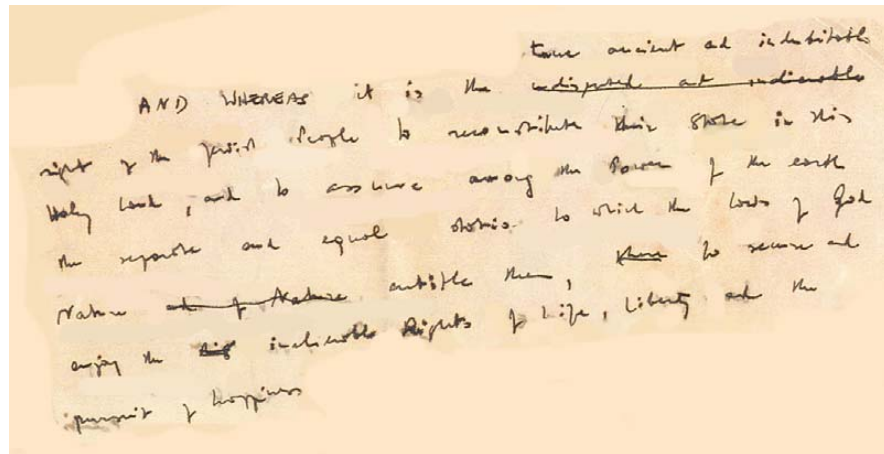 true ancient and indubitable
AND WHEREAS it is the undisputed and undeniable
right of the Jewish People to reconstitute their State in this
Holy Land, and to assume among the Powers of the earth
the separate and equal station to which the laws of God
Nature and of Nature entitle them, to secure and
enjoy the inalienable Rights of Life, Liberty and the
pursuit of happiness